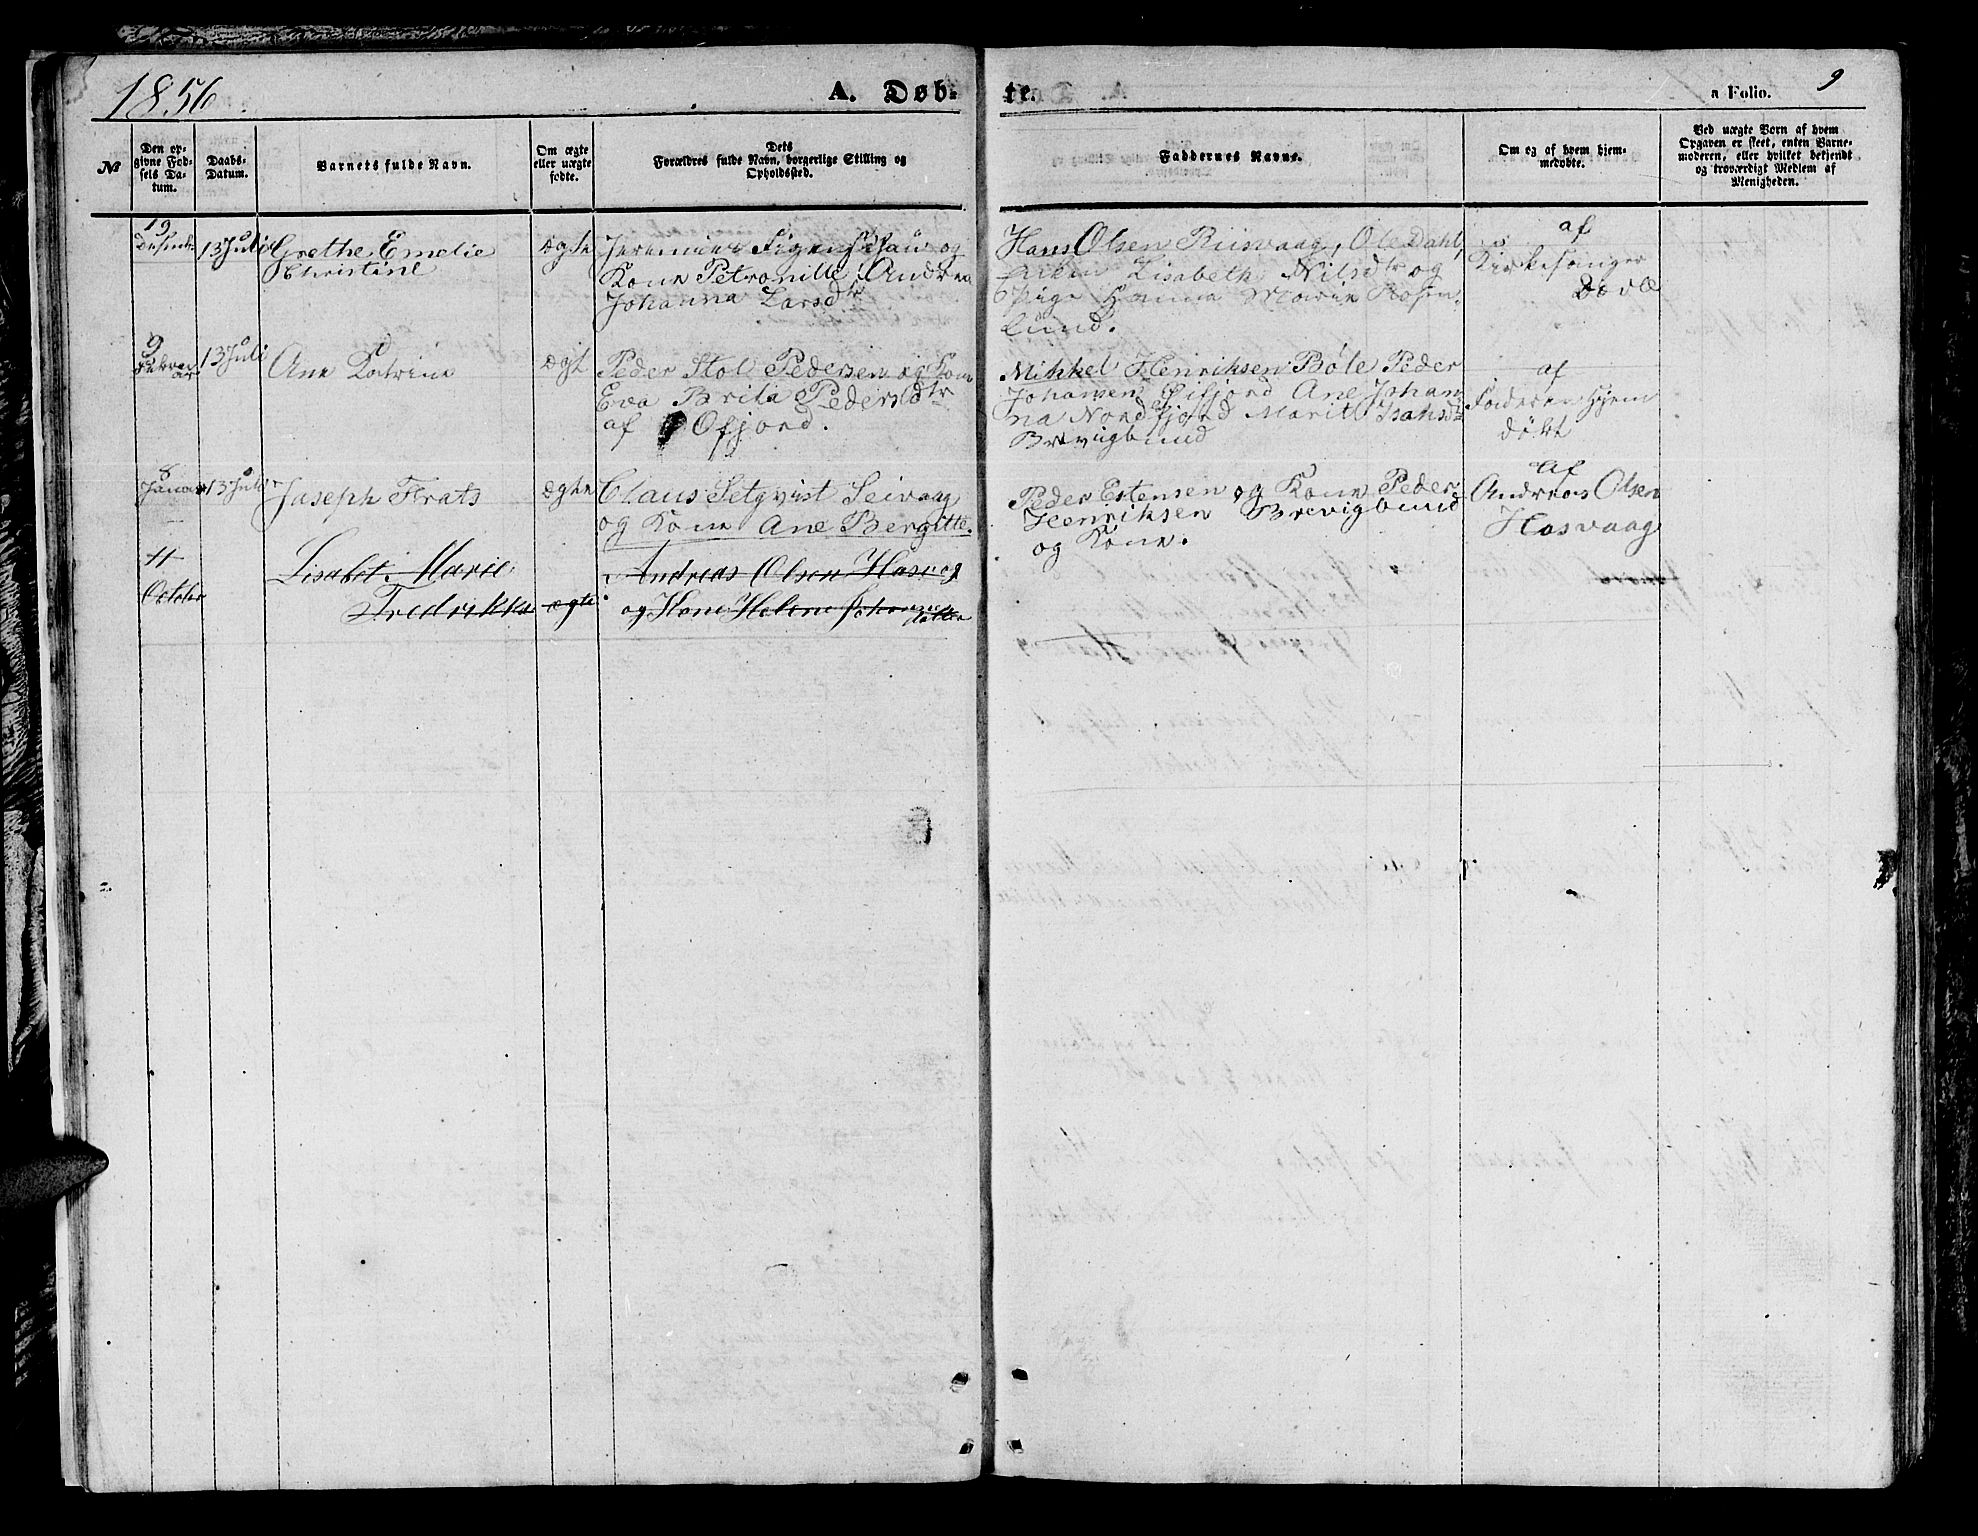 1856
A. Døb-
te.
a Folio. 9
№
Den op-
givne Fød-
sels Da-
tum.
Daabs-
Datum.
Barnets fulde Navn.
Om ægte
eller uægte
fødte.
Dets
Forældres fulde Navn, borgerlige Stilling og
Opholdssted.
Faddernes Navne.
Om og af hvem hjem-
medøbte.
Ved uægte Børn af hvem
Opgaven er skeet, enten Barne-
moderen, eller hvilket bekjendt
og troværdigt Medlem af
Menigheden.
19
13 Juli
Grethe Emelie
Christine
ægte
og
Kone Petronille Andrea
Johanna Larsdtr
Hans Olsen Riisvaag, Ole Dahl,
Lisabeth Nilsdtr og
Pige Hanna Marie Rosen-
lund.
af
Kirkesanger
9
Februar
13 Juli
Ane Katrine
ægt
Peder Stol Pedersen og Kone
Eva Brita Pedersdtr
af Øfjord.
Mikkel Henriksen Bøle Peder
Johansen Øifjord Ane Johan
na Nordfjord Marit Isaksdtr
Brevigbund
af
Faderen Hjem
døbt
8
Januar
13 Juli
Joseph
ægte
Claus Setqvist Seivaag
og Kone Ane Bergitte.
Peder Estensen og Kone Peder
Henriksen Brevigbund
og Kone.
af
Andreas Olsen
Hasvaag
11
October
Lisabet Marie
Fredrikke
ægte
Andreas Olsen Hasvog
og Kone Helene Johannes
datter